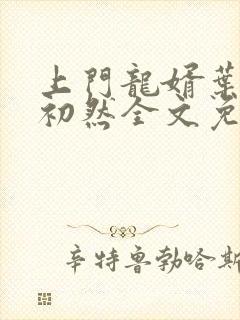 上門龍婿葉
初然全文免
辛特魯勃哈斯